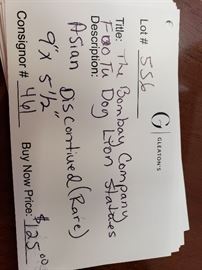 Lot # 556
G
GLEATON'S
Title: The Bombay Company
Description: Foo Tu Dog Lyon Statues
Asian Discontived (Rare)
9" x 5-1/2"
Consignor # 461
Buy Now Price: $125.00